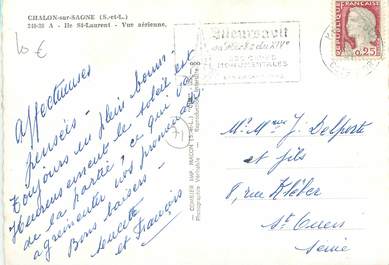 CHALON-sur-SAONE (S.-et-L.)
240-30 A - Ile St-Laurent - Vue aérienne.
10 €
Meursault
0,25
Affectueuses
pensées -
Toujours en plein boum -
Heureusement le soleil est
de la partie, ce qui va
agrémenter nos promenades
Bons baisers -
Lucette
et François
COMBIER IMP. MACON (S.-et-L.)
Photographie Véritable - Reproduction interdite
71
Mr. Mme J. Delporte
et fils
8, rue Kléber
St Ouen
Seine